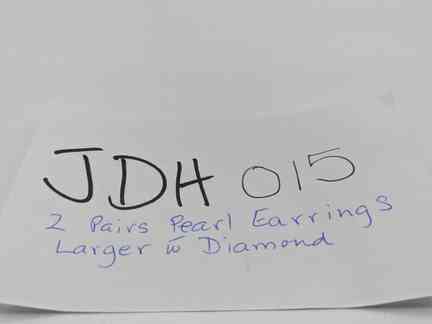 JDH 015
2 Pairs Pearl Earrings
Larger w̄ Diamond